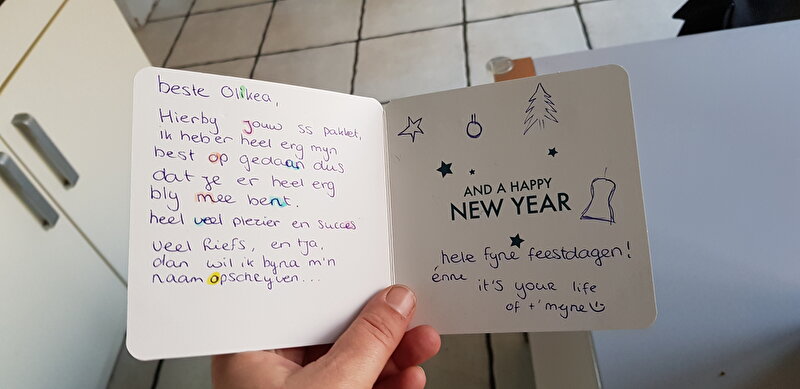 beste Olikea,
Hierby jouw ss pakket,
ik heb er heel erg myn
best op gedaan dus
dat je er heel erg
bly mee bent.
heel veel plezier en succes
veel liefs, en tja,
dan wil ik byna m'n
naam opschryven...
AND A HAPPY
NEW YEAR
hele fyne feestdagen!
énne it's your life
of t' myne